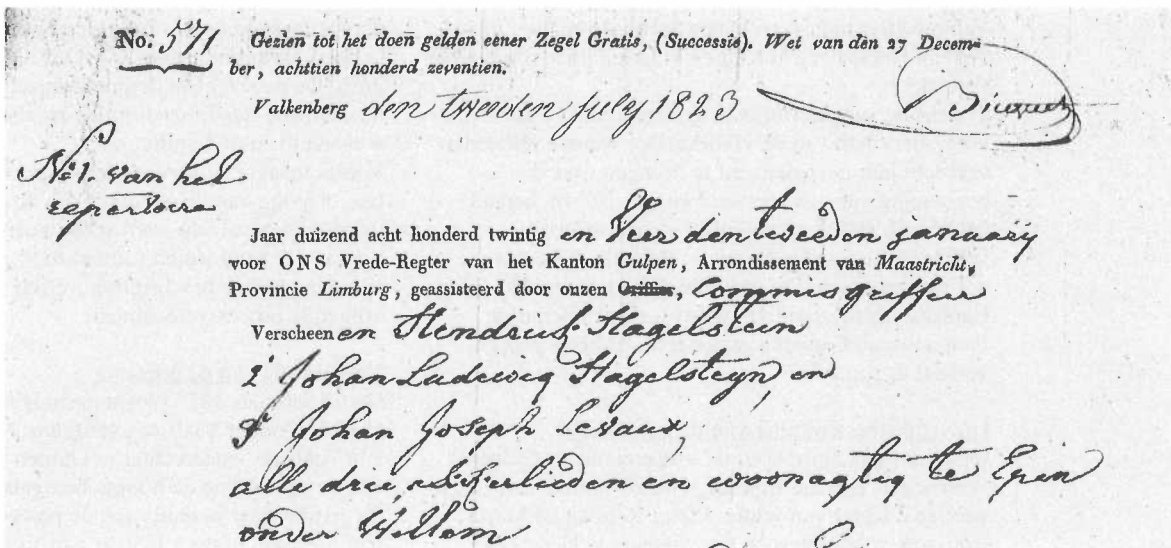 No. 571 Gezien tot het doen gelden eener Zegel Gratis, (Successie). Wet van den 27 Decem-
ber, achttien honderd zeventien.
Valkenberg den tweeden july 1823
No 1. van het
repertoire
Jaar duizend acht honderd twintig en Vier den tweeden january
voor ONS Vrede-Regter van het Kanton Gulpen, Arrondissement van Maastricht,
Provincie Limburg, geassisteerd door onzen Griffier, Commies griffier
Verscheen en Hendrik Hagelstein
2 Johan Ludewig Hagelsteyn, en
3 Johan Joseph Levaux
alle drei en woonagtig te Epen
onder Wittem